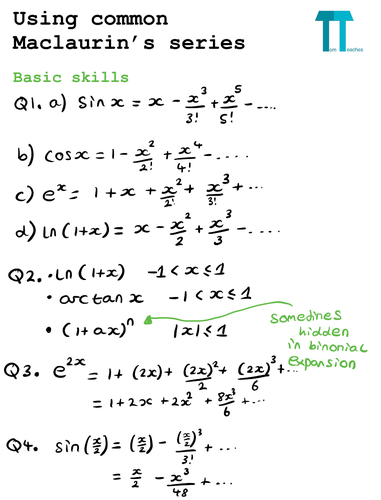 Using common
Maclaurin's series
TT
Tom Teaches
Basic skills
Q1. a) Sin x = x - x³/3! + x⁵/5! - ....
b) cosx = 1 - x²/2! + x⁴/4! - ....
c) eˣ = 1 + x + x²/2! + x³/3! + ...
d) Ln (1+x) = x - x²/2 + x³/3 - ....
Q2. • Ln (1+x) -1 < x ≤ 1
• arctan x -1 < x ≤ 1
• (1 + ax)ⁿ |x| ≤ 1
Sometimes
hidden
in binomial
expansion
Q3. e²ˣ = 1 + (2x) + (2x)²/2 + (2x)³/6 + ...
= 1 + 2x + 2x² + 8x³/6 + ...
Q4. sin(x/2) = (x/2) - (x/2)³/3! + ...
= x/2 - x³/48 + ...